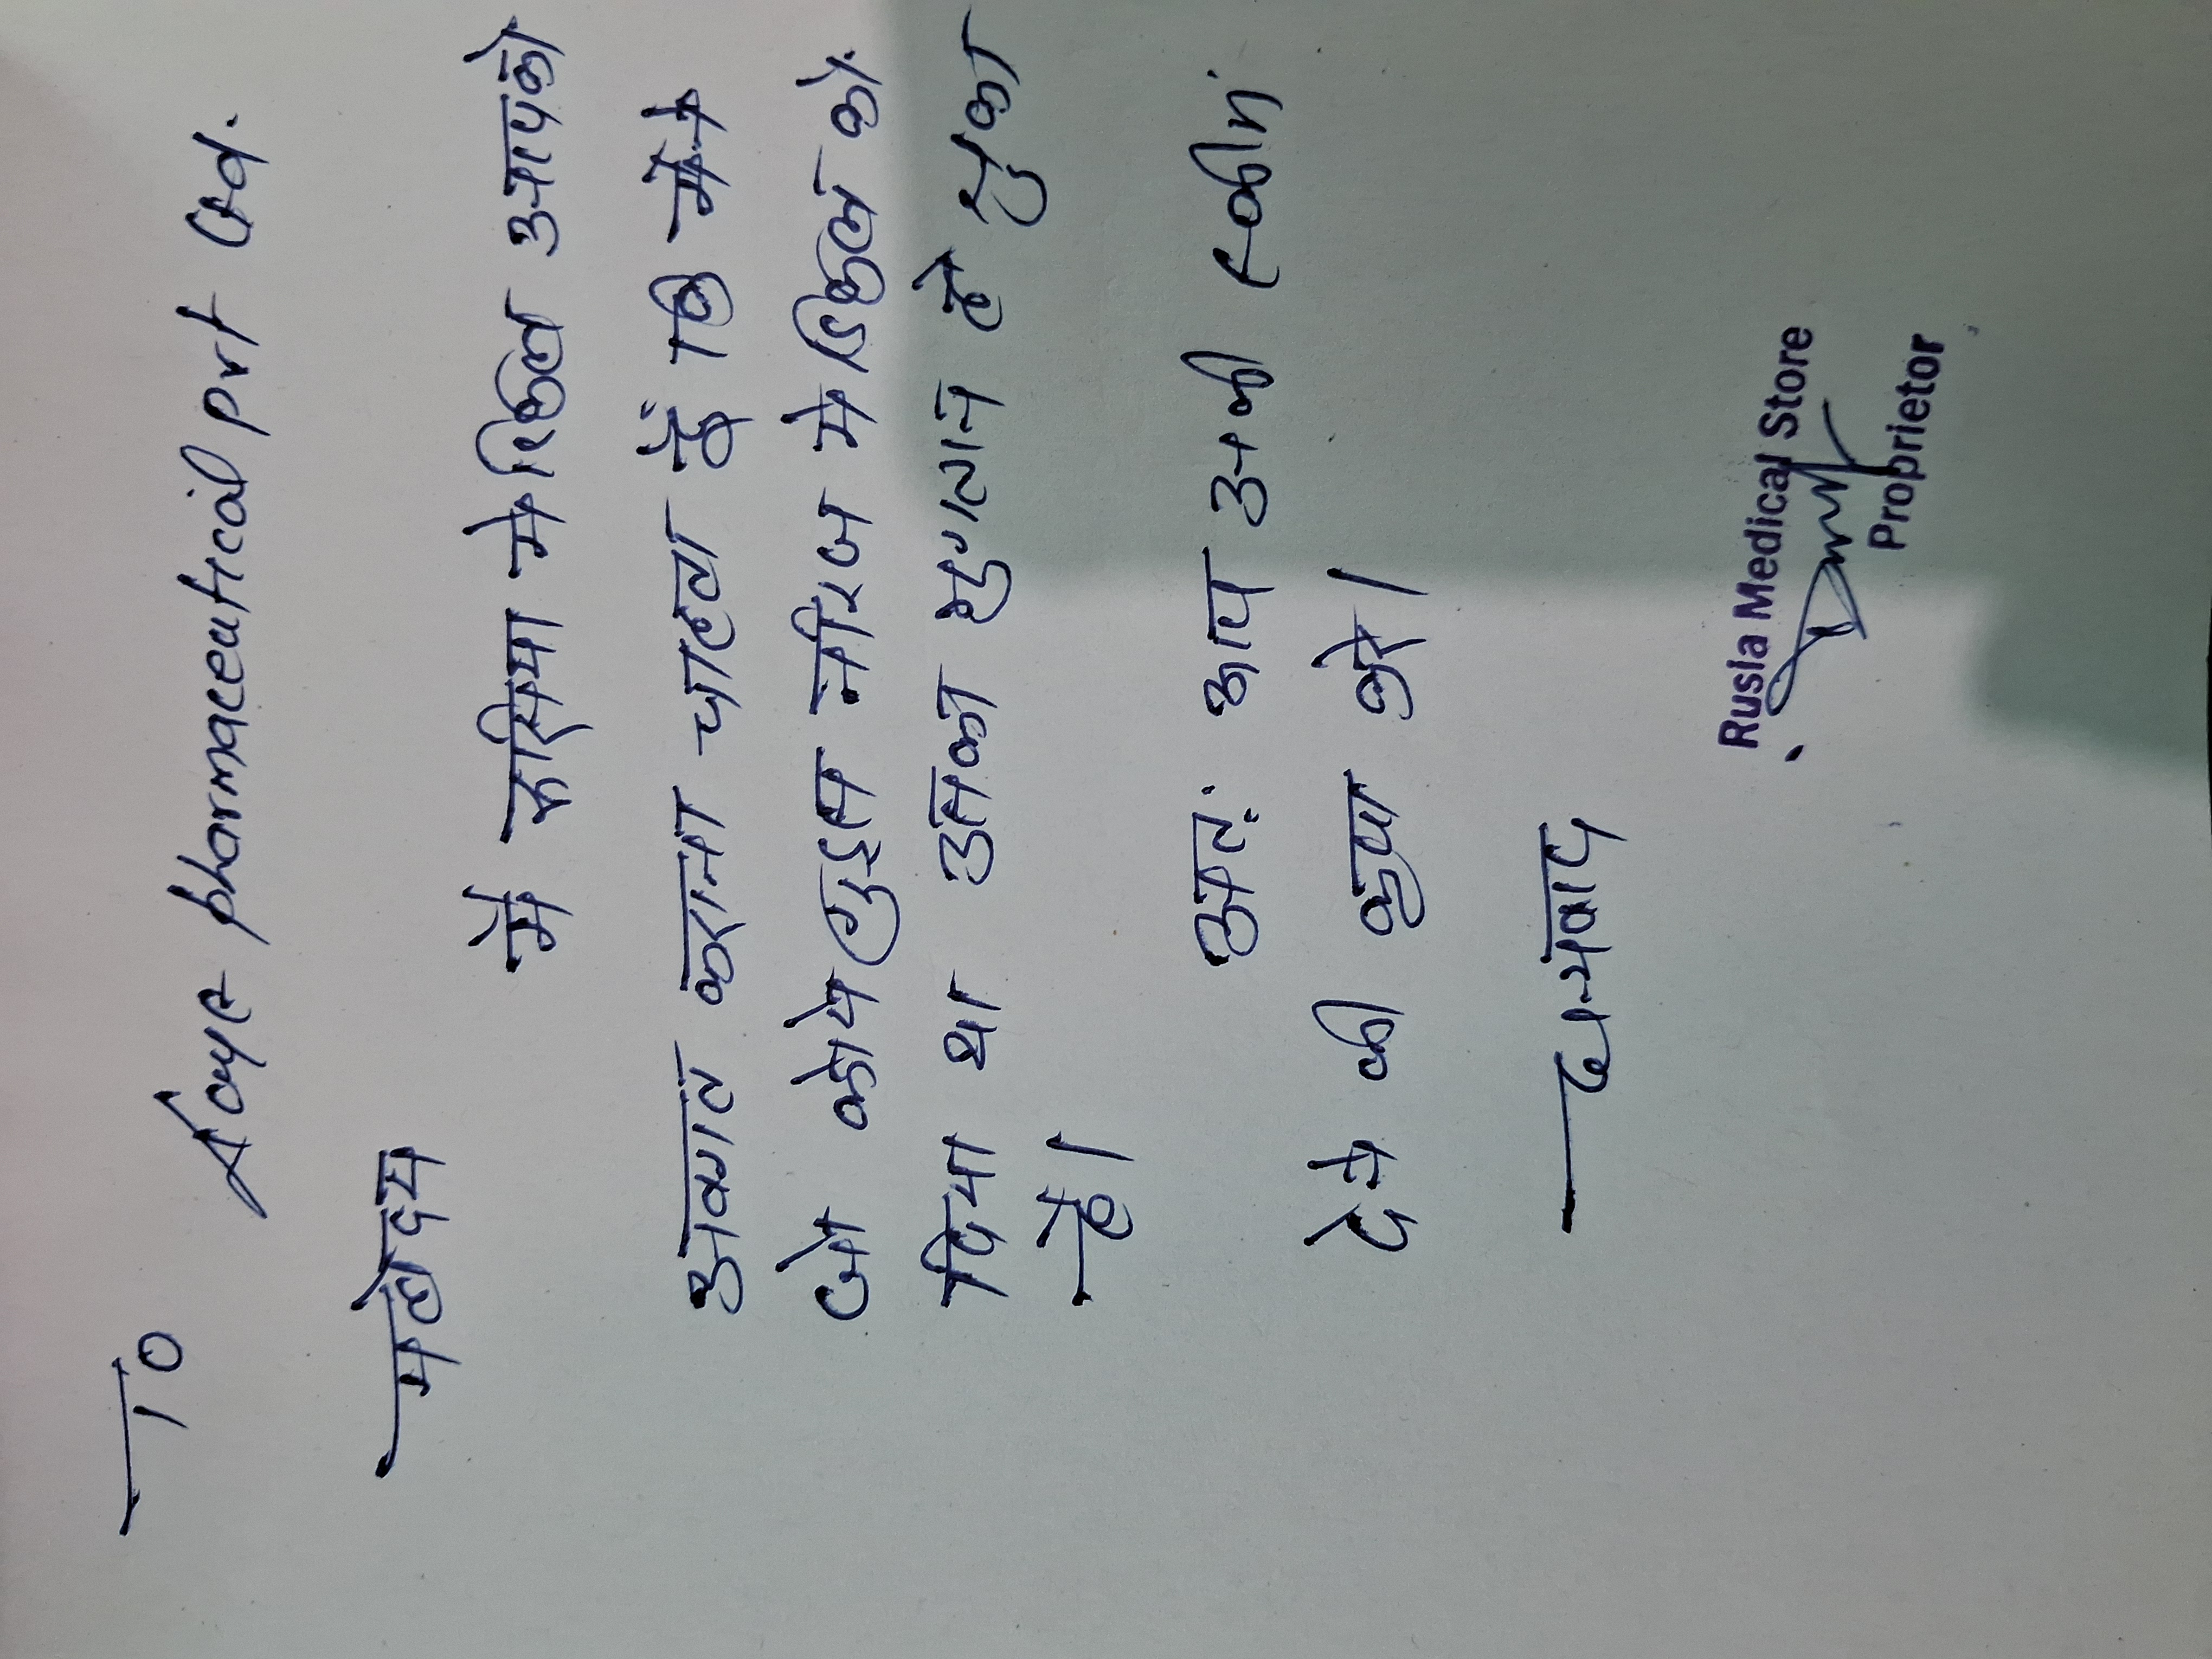 To
pharmaceutical pvt Ltd.
महोदय
मैं रूसिया मेडिकल आपको
अवगत कराना चाहता हूँ कि मैंने
जो क्रोयेलुइस नीरज मेडिकल को.
दिया था उसका भुगतान हो चुका
है।
अतः आप उनकी स्कीम
देने की कृपा करे।
धन्यवाद
Rusia Medical Store
Proprietor